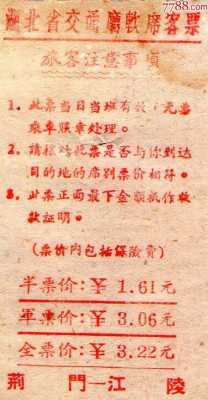 7788.com
湖北省交通廳軟席客票
旅客注意事項
1. 此票当日当班有效，
乘車照章处理。
2. 請核对此票是否与你到达
目的地的席别票价相符。
3. 此票正面最下金額抵作收
款証明。
(票价内包括保險費)
半票价:￥ 1.61元
軍票价:￥ 3.06元
全票价:￥ 3.22元
荆 門—江 陵